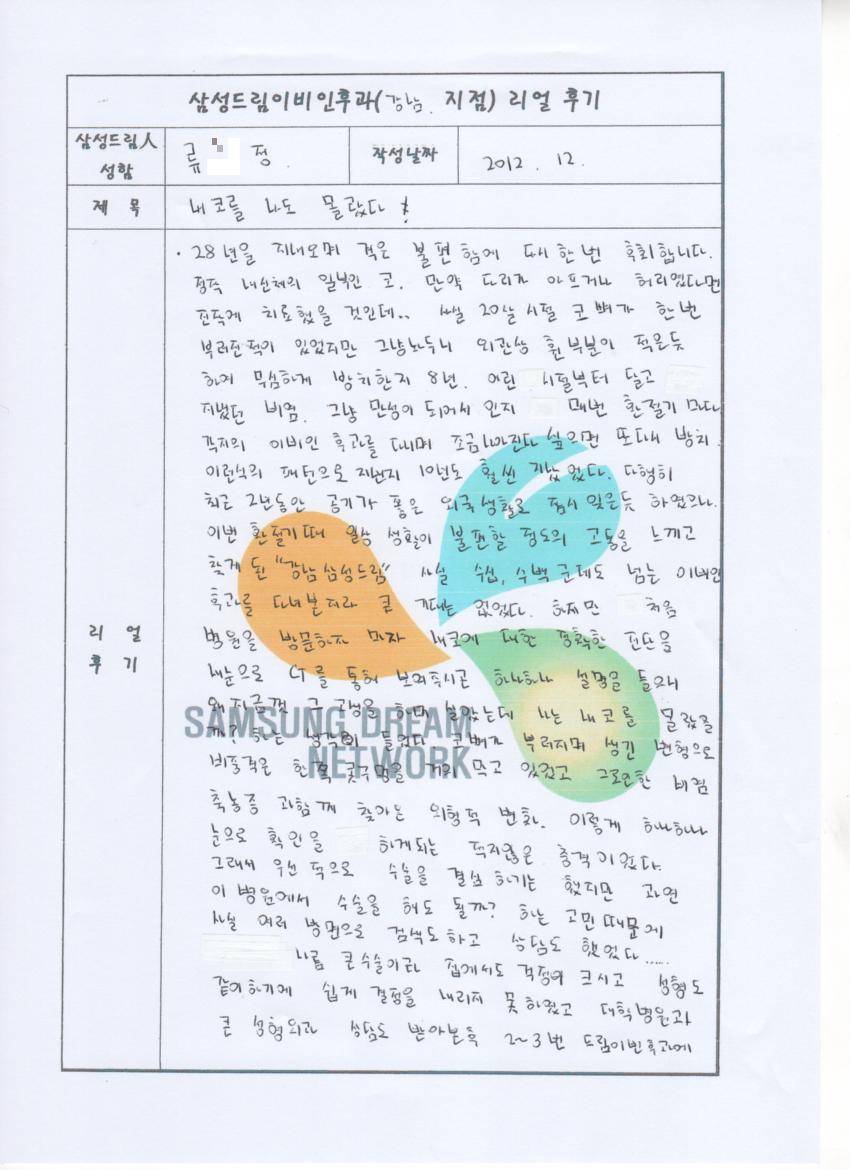 삼성드림이비인후과(강남 지점) 리얼 후기
삼성드림人 성함
류 정
작성날짜
2012. 12.
제 목
내 코를 나도 몰랐다!
리 얼
후 기
· 28년을 지내오며 적은 불편함에 다시 한번 후회합니다.
정작 내신체의 일부인 코. 만약 다리가 아프거나 허리였다면
진득에 치료했을 것인데.. 사실 20살 시절 코 뼈가 한번
부러진적이 있었지만 그냥놔두니 외관상 휜부분이 적은듯
하여 무심하게 방치한지 8년. 어린 시절부터 달고
지냈던 비염. 그냥 만성이 되어서 인지 매번 환절기 마다
각지의 이비인후과를 다니며 조금나아진다 싶으면 또다시 방치.
이런식의 패턴으로 지낸지 10년도 훨씬 지났었다. 다행히
최근 2년동안 공기가 좋은 외국생활로 잠시 잊은듯 하였으나.
이번 환절기때 일상 생활이 불편할 정도의 고통을 느끼고
찾게 된 "강남삼성드림" 사실 수십, 수백 군데도 넘는 이비인
후과를 다녀본지라 큰 기대는 없었다. 하지만 처음
병원을 방문하자 마자 내코에 대한 정확한 진단을
내눈으로 CT를 통해 보여주시곤 하나하나 설명을 들으니
왜 지금껏 그 고생을 하며 살았는데 나는 내 코를 몰랐을
까? 하는 생각이 들었다. 코뼈가 부러지며 생긴 변형으로
비중격은 한쪽 콧구멍을 거의 막고 있었고 그로인한 비염
축농증 과함께 찾아온 외형적 변화. 이렇게 하나하나
눈으로 확인을 하게되는 적지않은 충격이었다.
그래서 우선 적으로 수술을 결심 하기는 했지만 과연
이 병원에서 수술을 해도 될까? 하는 고민 때문에
사실 여러 방면으로 검색도 하고 상담도 했었다.....
나름 큰수술이라 집에서도 걱정이 크시고 성형도
같이하기에 쉽게 결정을 내리지 못하였고 대학병원과
큰 성형외과 상담도 받아본후 2~3번 드림이빈후과에
SAMSUNG DREAM
NETWORK